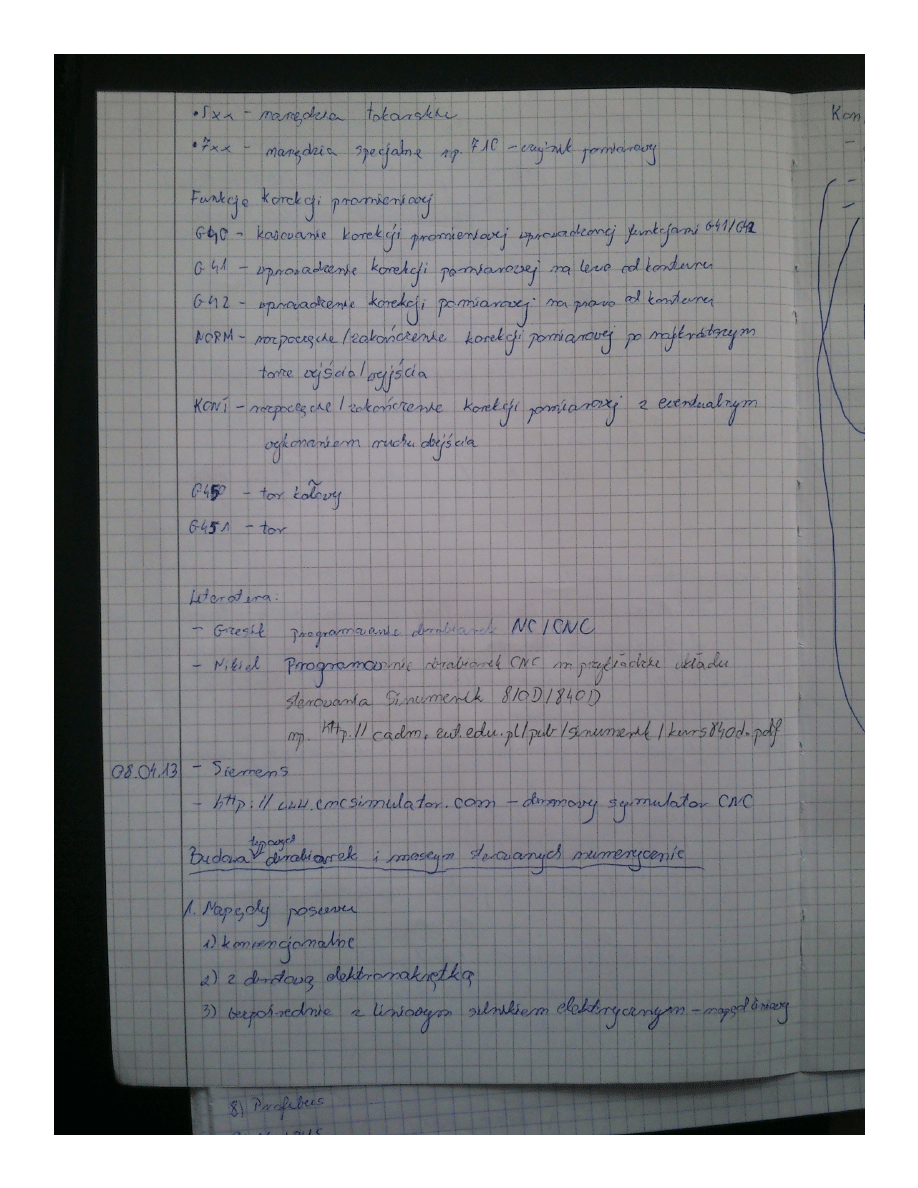 •5xx – narzędzia tokarskie
•7xx – narzędzia specjalne np. 710 – czujnik pomiarowy
Funkcje korekcji promieniowej
G40 – kasowanie korekcji promieniowej wprowadzonej funkcjami G41/G42
G41 – wprowadzenie korekcji pomiarowej na lewo od konturu
G42 – wprowadzenie korekcji pomiarowej na prawo od konturu
NORM – rozpoczęcie/zakończenie korekcji pomiarowej po najkrótszym
torze wejścia/wyjścia
KONT – rozpoczęcie/zakończenie korekcji pomiarowej z ewentualnym
wykonaniem ruchu obejścia
G450 – tor kołowy
G451 – tor
Literatura:
– Grzesik programowanie obrabiarek NC/CNC
– Nikiel Programowanie obrabiarek CNC na przykładzie układu
sterowania Sinumerik 810D/840D
np. http://cadm. .edu.pl/pub/sinumerik/kurs840d.pdf
08.04.13 – Siemens
– http://www.cncsimulator.com – darmowy symulator CNC
Budowa obrabiarek i maszyn sterowanych numerycznie
1. Napędy posuwu
1) konwencjonalne
2) z obrotową elektronakrętką
3) bezpośrednie z liniowym silnikiem elektrycznym – napęd liniowy
8) Profibus
Kon